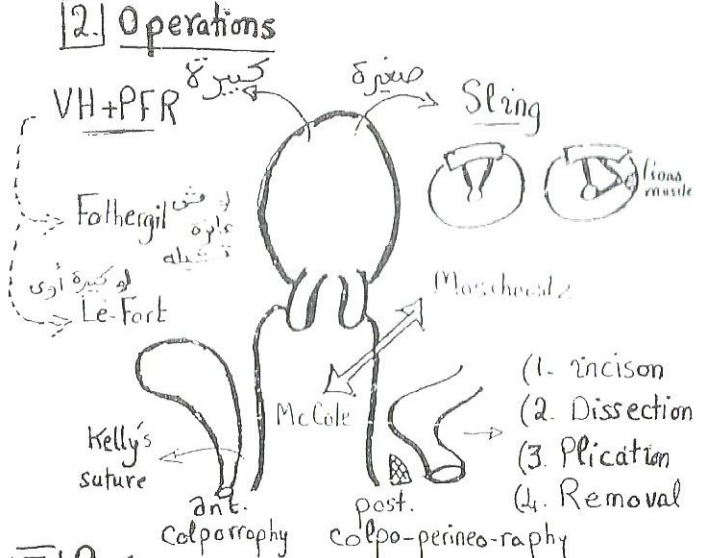 2. Operations
كبيرة
صغيرة
VH+PFR
Sling
Psoas muscle
Fothergil
لو مش
عايزة
تشيله
لو كبيرة أوى
Le-Fort
Moschcowitz
McCole
Kelly's
suture
(1. incison
(2. Dissection
(3. Plication
(4. Removal
ant.
Colporraphy
post.
Colpo-perineo-raphy